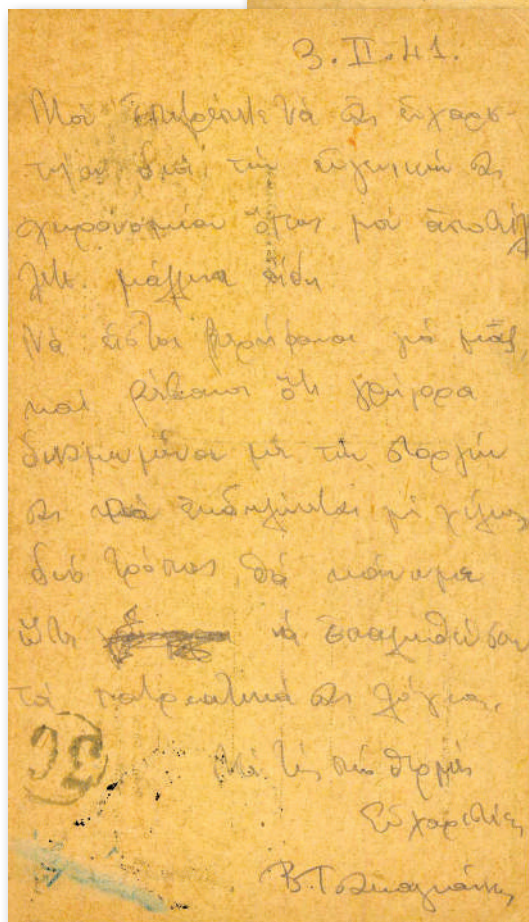 3.II.41.
Μοῦ ἐπιτρέπετε νὰ σᾶς εὐχαρισ-
τήσω διὰ τὴν εὐγενικήν σας
χειρονομίαν ὅπως μοῦ ἀποστεί
λετε μάλλινα εἴδη
Νὰ εἶστε γιὰ μᾶς
καὶ βέβαιοι ὅτι γρήγορα
μὲ τὴν στοργήν
σας ἐκδηλώνεται μὲ
δυὸ τρόπους θὰ κάνωμε
ὥστε νὰ ἐπαληθεύσουν
τὰ πατριωτικά σας λόγια.
Μὲ τὶς πιὸ θερμὲς
Εὐχαριστίες
Β.